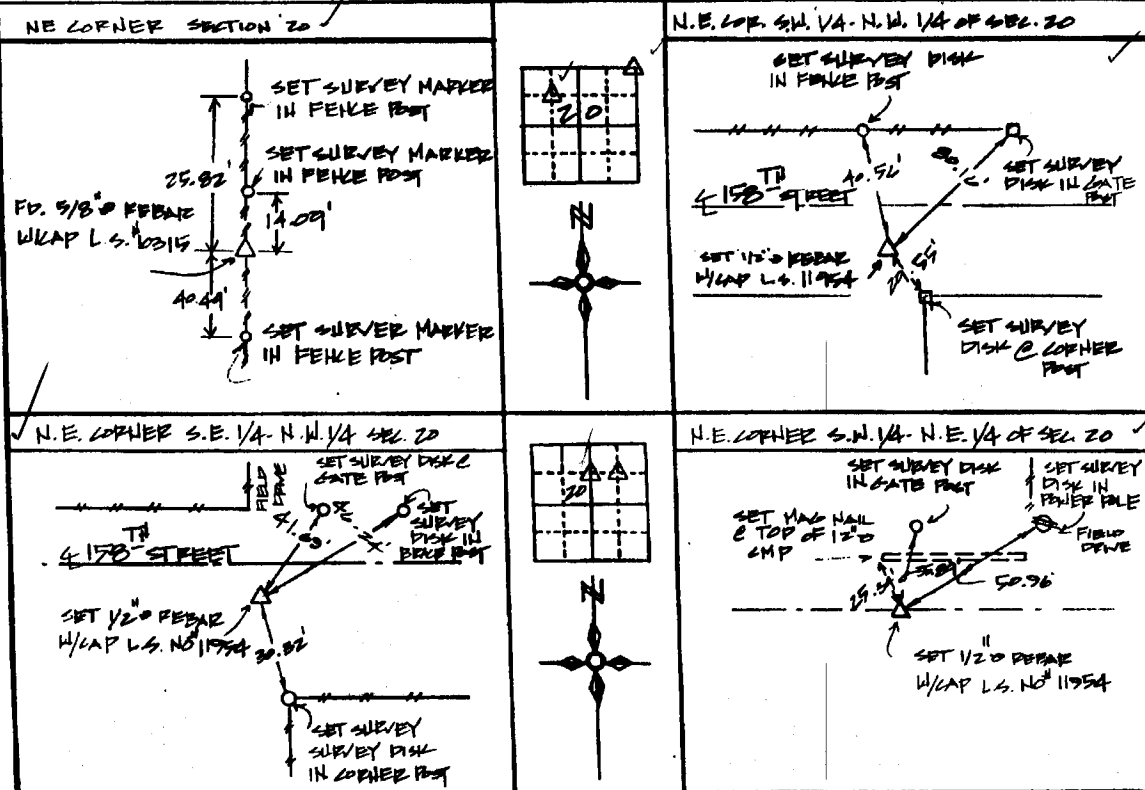 NE CORNER SECTION 20
SET SURVEY MARKER
IN FENCE POST
SET SURVEY MARKER
IN FENCE POST
25.82'
14.09'
FD. 5/8"Ø REBAR
W/CAP L.S.#6315
40.49'
SET SURVER MARKER
IN FENCE POST
20
N
N.E. COR. S.W. 1/4 - N.W. 1/4 OF SEC. 20
SET SURVEY DISK
IN FENCE POST
SET SURVEY
DISK IN GATE
POST
℄ 158TH STREET
SET 1/2"Ø REBAR
W/CAP L.S. 11954
SET SURVEY
DISK @ CORNER
POST
N.E. CORNER S.E. 1/4 - N.W. 1/4 SEC. 20
FIELD
DRIVE
SET SURVEY DISK @
GATE POST
SET
SURVEY
DISK IN
POST
℄ 158TH STREET
SET 1/2"Ø REBAR
W/CAP L.S. NO# 11954
30.82'
SET SURVEY
SURVEY DISK
IN CORNER POST
20
N
N.E. CORNER S.W. 1/4 - N.E. 1/4 OF SEC. 20
SET SURVEY DISK
IN GATE POST
SET SURVEY
DISK IN
POWER POLE
SET MAG NAIL
@ TOP OF 12"Ø
CMP
FIELD
DRIVE
50.96'
SET 1/2"Ø REBAR
W/CAP L.S. NO# 11954